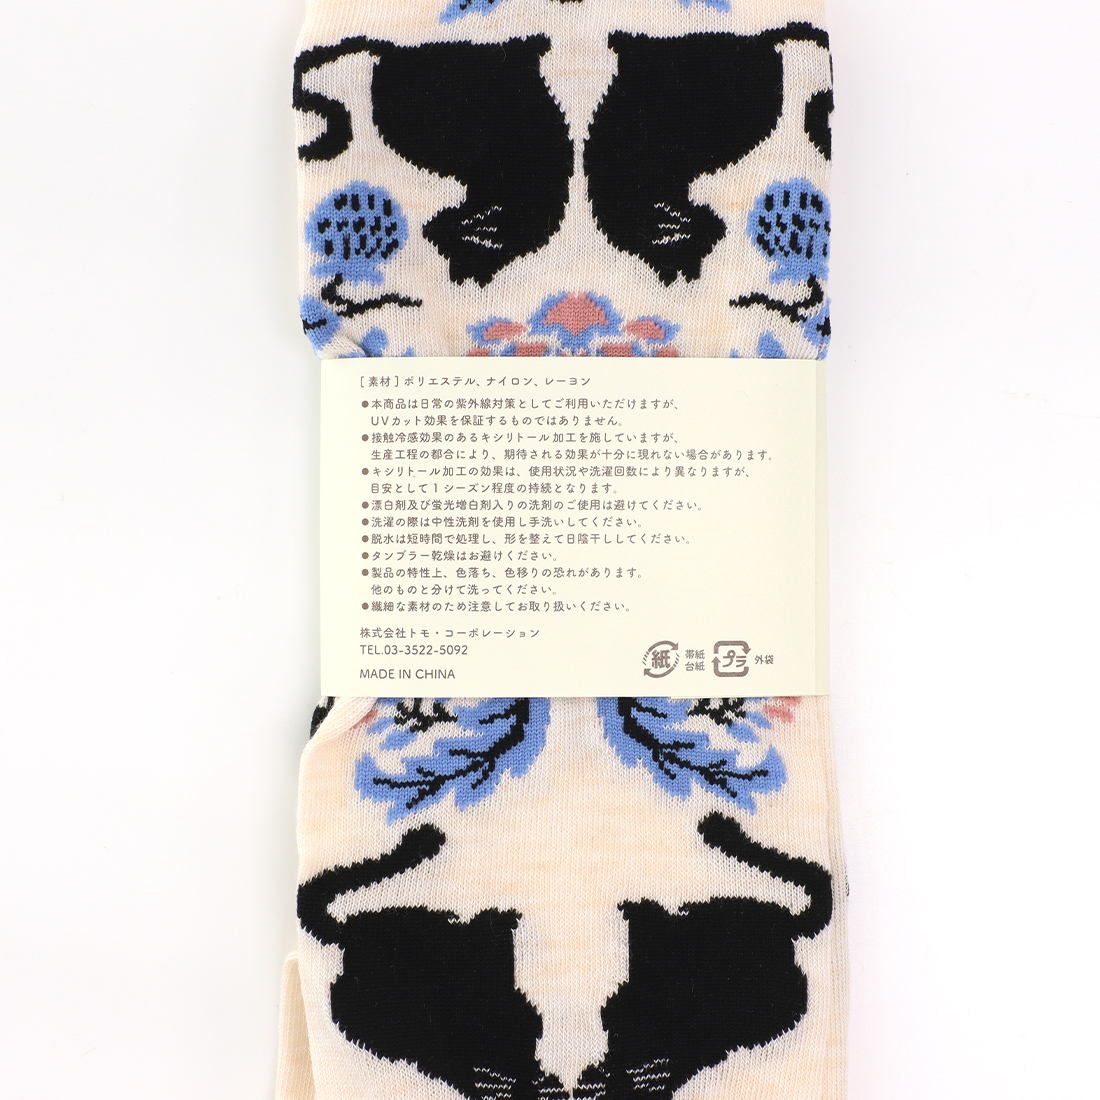 [素材]ポリエステル、ナイロン、レーヨン
●本商品は日常の紫外線対策としてご利用いただけますが、
UVカット効果を保証するものではありません。
●接触冷感効果のあるキシリトール加工を施していますが、
生産工程の都合により、期待される効果が十分に現れない場合があります。
●キシリトール加工の効果は、使用状況や洗濯回数により異なりますが、
目安として1シーズン程度の持続となります。
●漂白剤及び蛍光増白剤入りの洗剤のご使用は避けてください。
●洗濯の際は中性洗剤を使用し手洗いしてください。
●脱水は短時間で処理し、形を整えて日陰干ししてください。
●タンブラー乾燥はお避けください。
●製品の特性上、色落ち、色移りの恐れがあります。
他のものと分けて洗ってください。
●繊細な素材のため注意してお取り扱いください。
株式会社トモ・コーポレーション
TEL.03-3522-5092
MADE IN CHINA
紙
帯紙
台紙
プラ
外袋